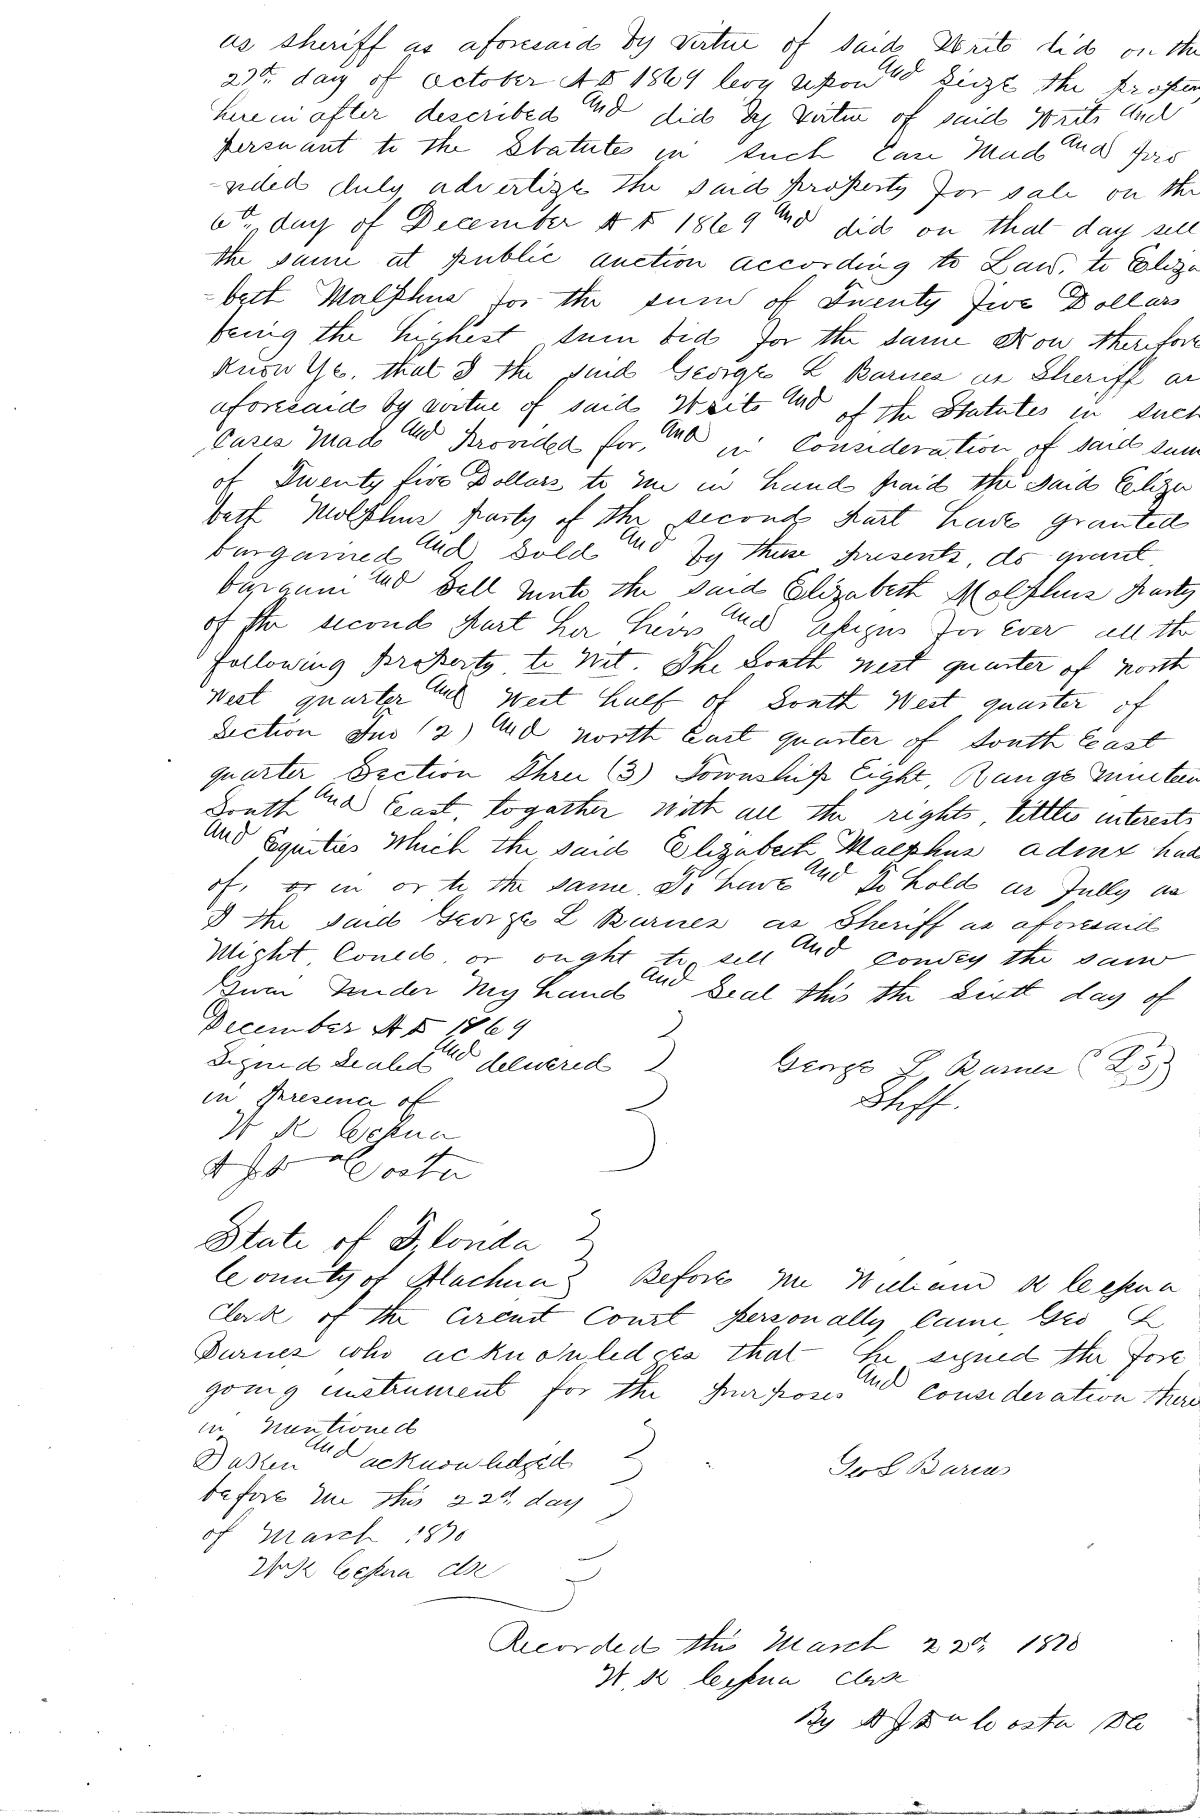 as Sheriff as aforesaid by virtue of said Writs did on the
27th day of October A D 1869 levy upon and Seize the proper
herein after described and did by virtue of said Writs and
persuant to the Statutes in such Case Made and pro
-vided duly advertize the said property for sale on the
6th day of December A D 1869 and did on that day sell
the same at public auction according to Law, to Eliza
-beth Malphus for the sum of Twenty five Dollars
being the highest sum bid for the same Now therefore
Know Ye, that I the said George L Barnes as Sheriff as
aforesaid by virtue of said Writs and of the Statutes in such
Cases Made and provided for, and in Consideration of said sum
of Twenty five Dollars to me in hand paid the said Eliza
beth Molphus party of the second part have granted
bargained and Sold and by these presents, do grant
bargain and Sell unto the said Elizabeth Molphus party
of the second part her heirs and assigns for Ever all the
following property to Wit. The South west quarter of north
West quarter and West half of South West quarter of
Section Two (2) and north East quarter of South East
quarter Section Three (3) Township Eight, Range nineteen
South and East, togather with all the rights, tittles interests
and Equities Which the said Elizabeth Malphus admx had
of, or in or to the same. To have and To hold as fully as
I the said George L Barnes as Sheriff as aforesaid
Might, Could, or ought to sell and convey the same
Given under My hand and Seal this the Sixth day of
December A D 1869
Signed Sealed and delivered
George L Barnes (LS)
in presence of
Shff.
W K Cessna
A J Da Costa
State of Florida
County of Alachua Before Me William K Cessna
Clerk of the Circuit Court personally Came, Geo L
Barnes who acknowledges that he signed the fore
going instrument for the purposes and consideration there
in mentioned
Taken and acknowledged
Geo L Barnes
before Me this 22d day
of March 1870
W K Cessna Clk
Recorded this March 22d 1870
W. K Cessna Clerk
By A J Da Costa DC